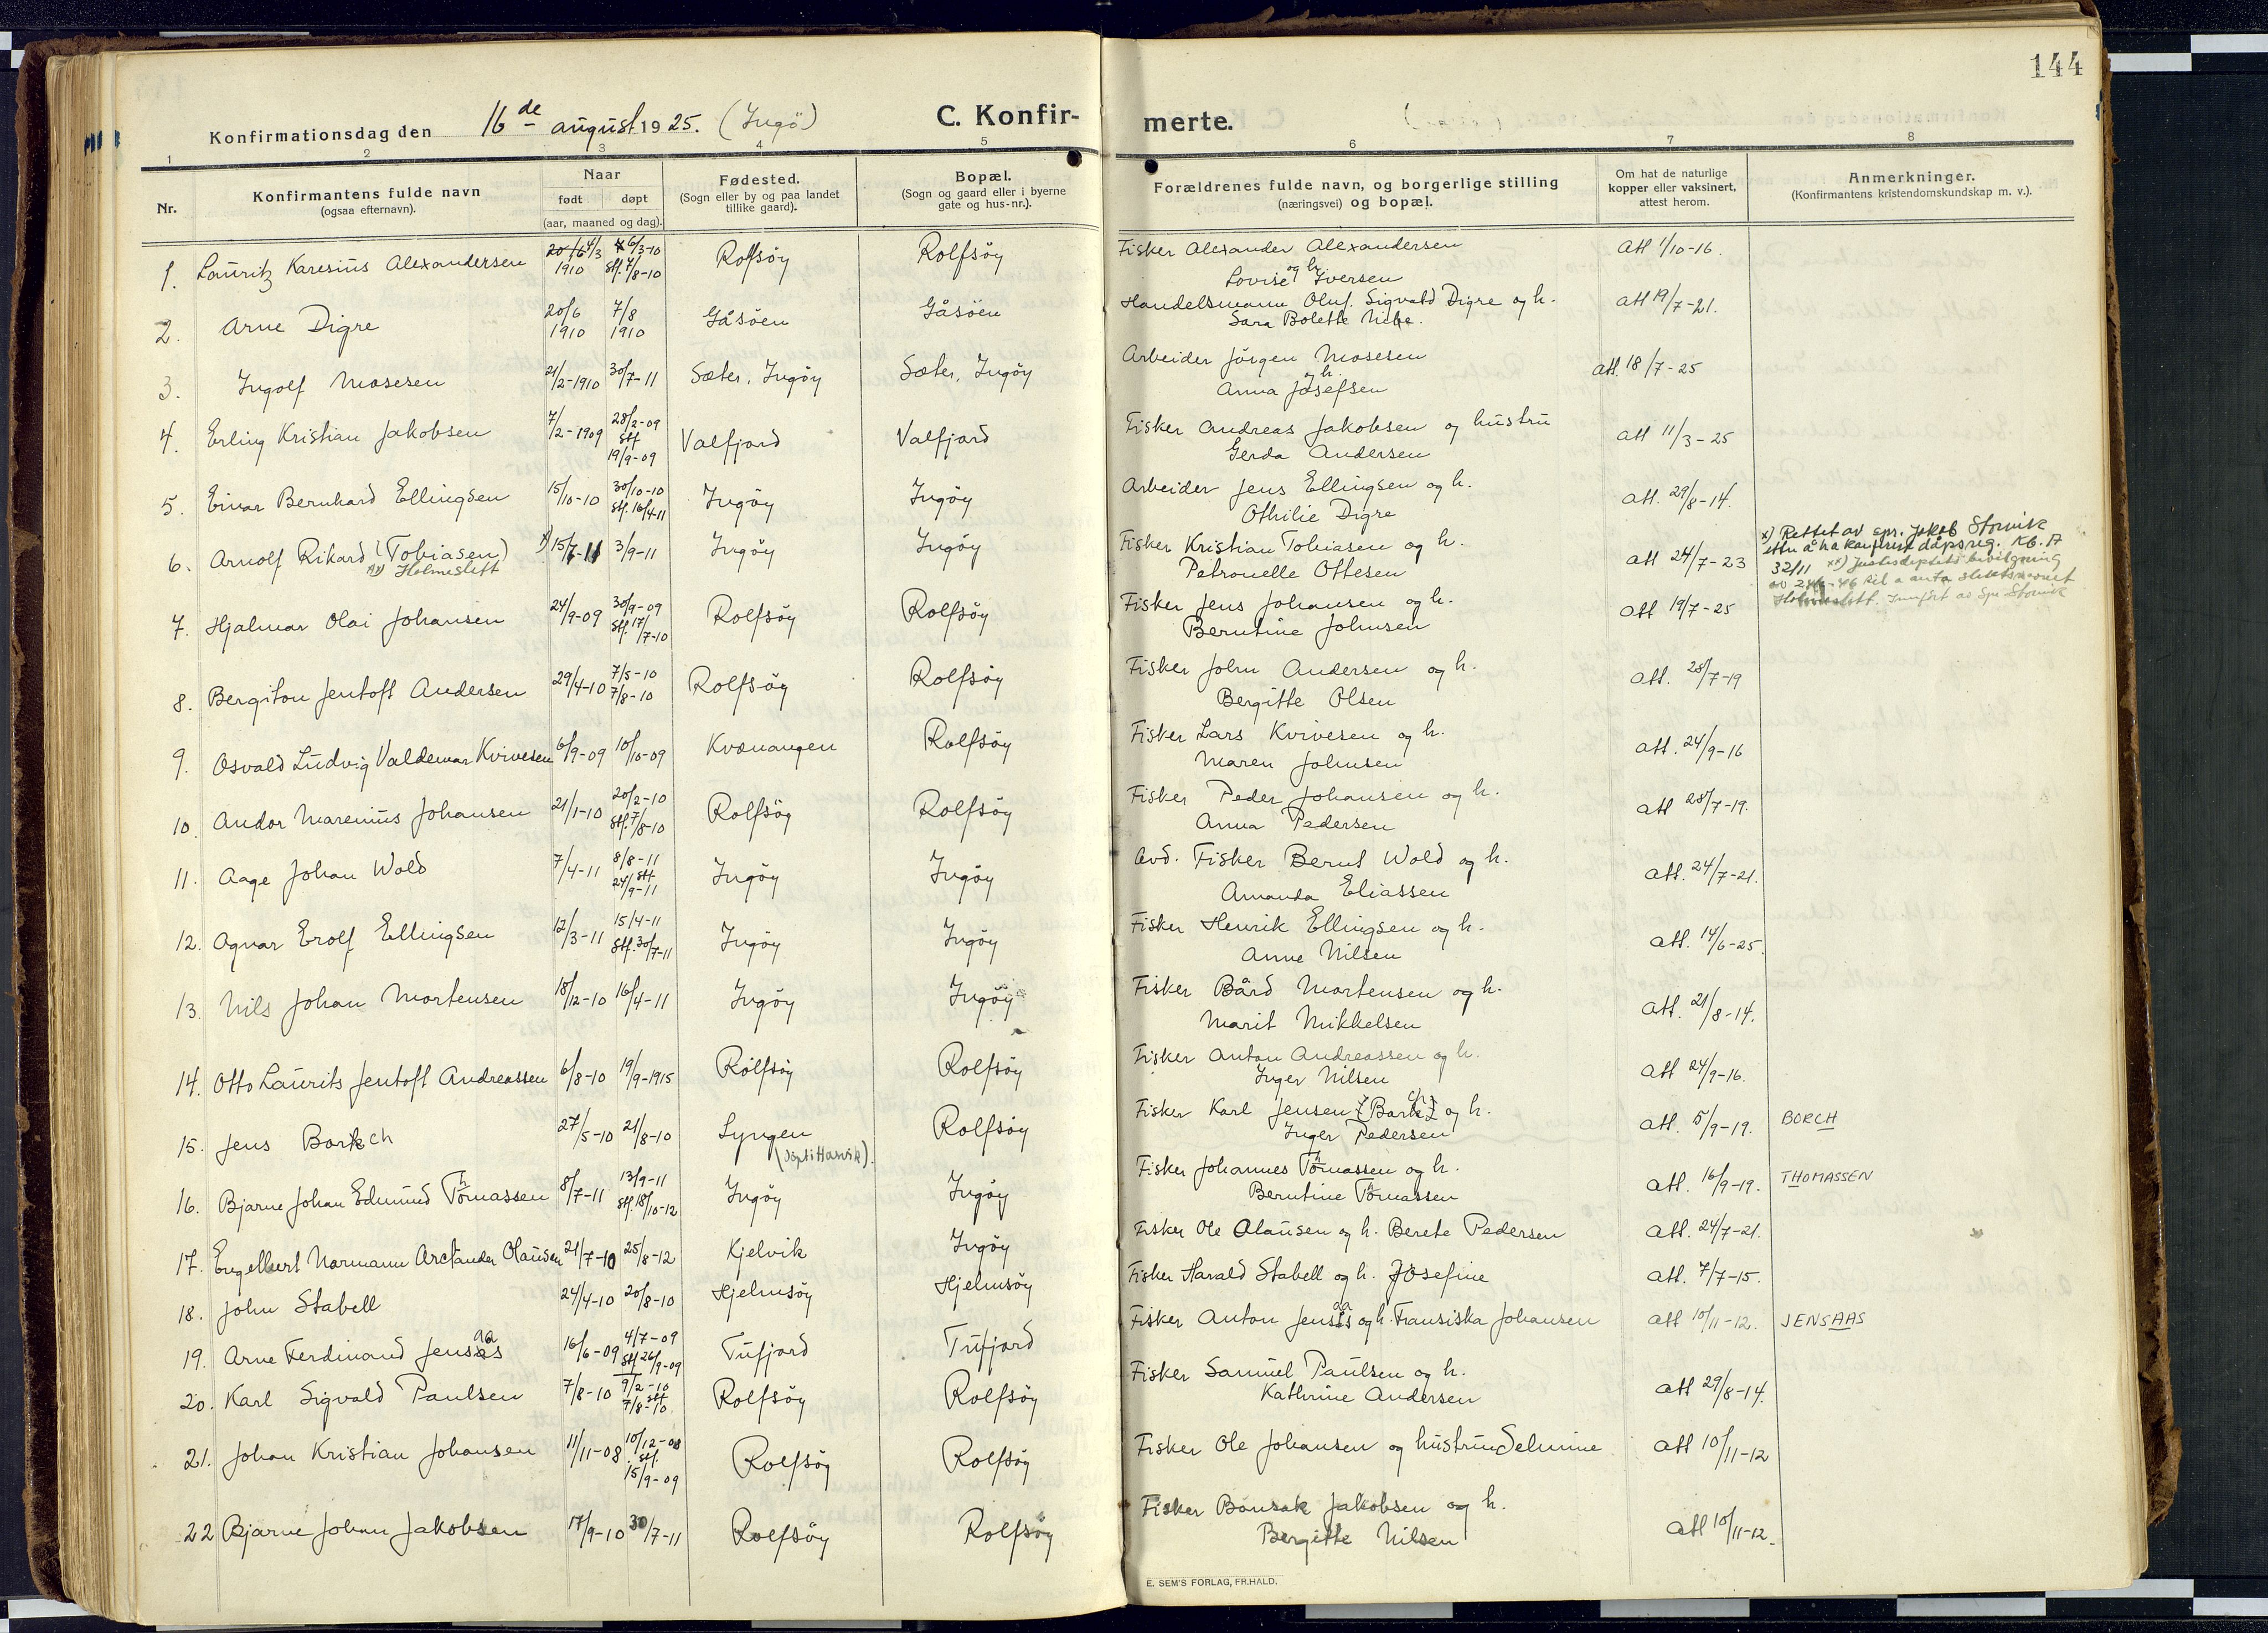 144
Konfirmationsdag den 16de august 1925. (Ingö) C. Konfir- merte.
1 2 3 4 5 6 7 8
Nr.
Konfirmantens fulde navn
(ogsaa efternavn).
Naar
født døpt
(aar, maaned og dag).
Fødested.
(Sogn eller by og paa landet
tillike gaard).
Bopæl.
(Sogn og gaard eller i byerne
gate og hus-nr.).
Forældrenes fulde navn, og borgerlige stilling
(næringsvei) og bopæl.
Om hat de naturlige
kopper eller vaksinert,
attest herom.
Anmerkninger.
(Konfirmantens kristendomskundskap m. v.).
1. Lauritz Karesius Alexandersen 4/3 1910 6/3-10 stf. 7/8-10 Rolfsöy Rolfsöy Fisker Alexander Alexandersen att 1/10-16.
og h. Lovise Iversen
2. Arne Digre 20/6 1910 7/8 1910 Gåsöen Gåsöen Handelsmann Oluf Sigvald Digre og h. att 19/7-21.
Sara Bolette
3. Ingolf Mosesen 21/2-1910 30/7-11 Sæter, Ingöy Sæter, Ingöy Arbeider Jörgen Mosesen att. 18/7-25
og h. Anna Josefsen
4. Erling Kristian Jakobsen 7/2-1909 28/2-09 stf 19/9-09 Valfjord Valfjord Fisker Andreas Jakobsen og hustru att 11/3-25
Gerda Andersen
5. Einar Bernhard Ellingsen 15/10-10 30/10-10 stf. 16/4-11 Ingöy Ingöy Arbeider Jens Ellingsen og h. att. 29/8-14.
Othilie Digre
6. Arnolf Rikard (Tobiasen) xx) Holmeslett x) 15/7-11 3/9-11 Ingöy Ingöy Fisker Kristian Tobiasen og h. att 24/7-23 x) Rettet av spr. Jakob Storvik
Petronelle Ottesen etter å ha konferert dåpsreg. Kb. 17
32/11 xx) Justisdeptets bevilgning
av 24/6-46 til å anta slektsnavnet
Holmeslett. Innført av Spr Storvik
7. Hjalmar Olai Johansen 24/9-09 30/9-09 stf. 17/7-10 Rolfsöy Rolfsöy Fisker Jens Johansen og h. att 19/7-25
Berntine Johnsen
8. Bergiton Jentoft Andersen 29/4-10 7/5-10 7/8-10 Rolfsöy Rolfsöy Fisker John Andersen og h. att. 28/7-19
Bergitte Olsen
9. Osvald Ludvig Valdemar Kvivesen 6/9-09 10/10-09 Kvænangen Rolfsöy Fisker Lars Kvivesen og h. att. 24/9-16
Maren Johnsen
10. Andor Marenius Johansen 21/1-10 20/2-10 stf. 7/8-10 Rolfsöy Rolfsöy Fisker Peder Johansen og h. att 28/7-19.
Anna Pedersen
11. Aage Johan Wold 7/4-11 8/8-11 stf 24/9-11 Ingöy Ingöy Avd. Fisker Bernt Wold og h. att. 24/7-21.
Amanda Eliassen
12. Agnar Erolf Ellingsen 12/3-11 15/4-11 stf. 30/7-11 Ingöy Ingöy Fisker Henrik Ellingsen og h. att. 14/6-25.
Anne Nilsen
13. Nils Johan Mortensen 18/12-10 16/4-11 Ingöy Ingöy Fisker Bård Mortensen og h. att. 21/8-14.
Marit Mikkelsen
14. Otto Laurits Jentoft Andreassen 6/8-10 19/9-1915 Rolfsöy Rolfsöy Fisker Anton Andreassen og h. att 24/9-16.
Inger Nilsen
15. Jens Borkch 27/5-10 21/8-10 Lyngen (döpt i Hasvik). Rolfsöy Fisker Karl Jensen [Bork] ch og h. att. 5/9-19. BORCH
Inger Pedersen
16. Bjarne Johan Edmund Thomassen 8/7-11 13/9-11 stf. 18/10-12 Ingöy Ingöy Fisker Johannes Thomassen og h. att. 16/9-19. THOMASSEN
Berntine Thomassen
17. Engelbert Normann Arctander Olausen 21/7-10 25/8-12 Kjelvik Ingöy Fisker Ole Olausen og h. Berete Pedersen att. 24/7-21.
18. John Stabell 24/4-10 20/8-10 Hjelmsöy Hjelmsöy Fisker Harald Stabell og h. Josefine att. 7/7-15.
19. Arne Ferdinand Jensaas 16/6-09 4/7-09 stf 26/9-09 Tufjord Tufjord Fisker Anton Jensaas og h. Fransiska Johansen att 10/11-12. JENSAAS
20. Karl Sigvald Paulsen 7/8-10 9/2-10 stf 7/8-10 Rolfsöy Rolfsöy Fisker Samuel Paulsen og h. att 29/8-14.
Kathrine Andersen
21. Johan Kristian Johansen 11/11-08 10/12-08 stf. 15/9-09 Rolfsöy Rolfsöy Fisker Ole Johansen og hustru Selmine att 10/11-12
22 Bjarne Johan Jakobsen 17/9-10 30/7-11 Rolfsöy Rolfsöy Fisker Bonsak Jakobsen og h. att 10/11-12.
Bergitte Nilsen
E. SEM'S FORLAG, FR.HALD.